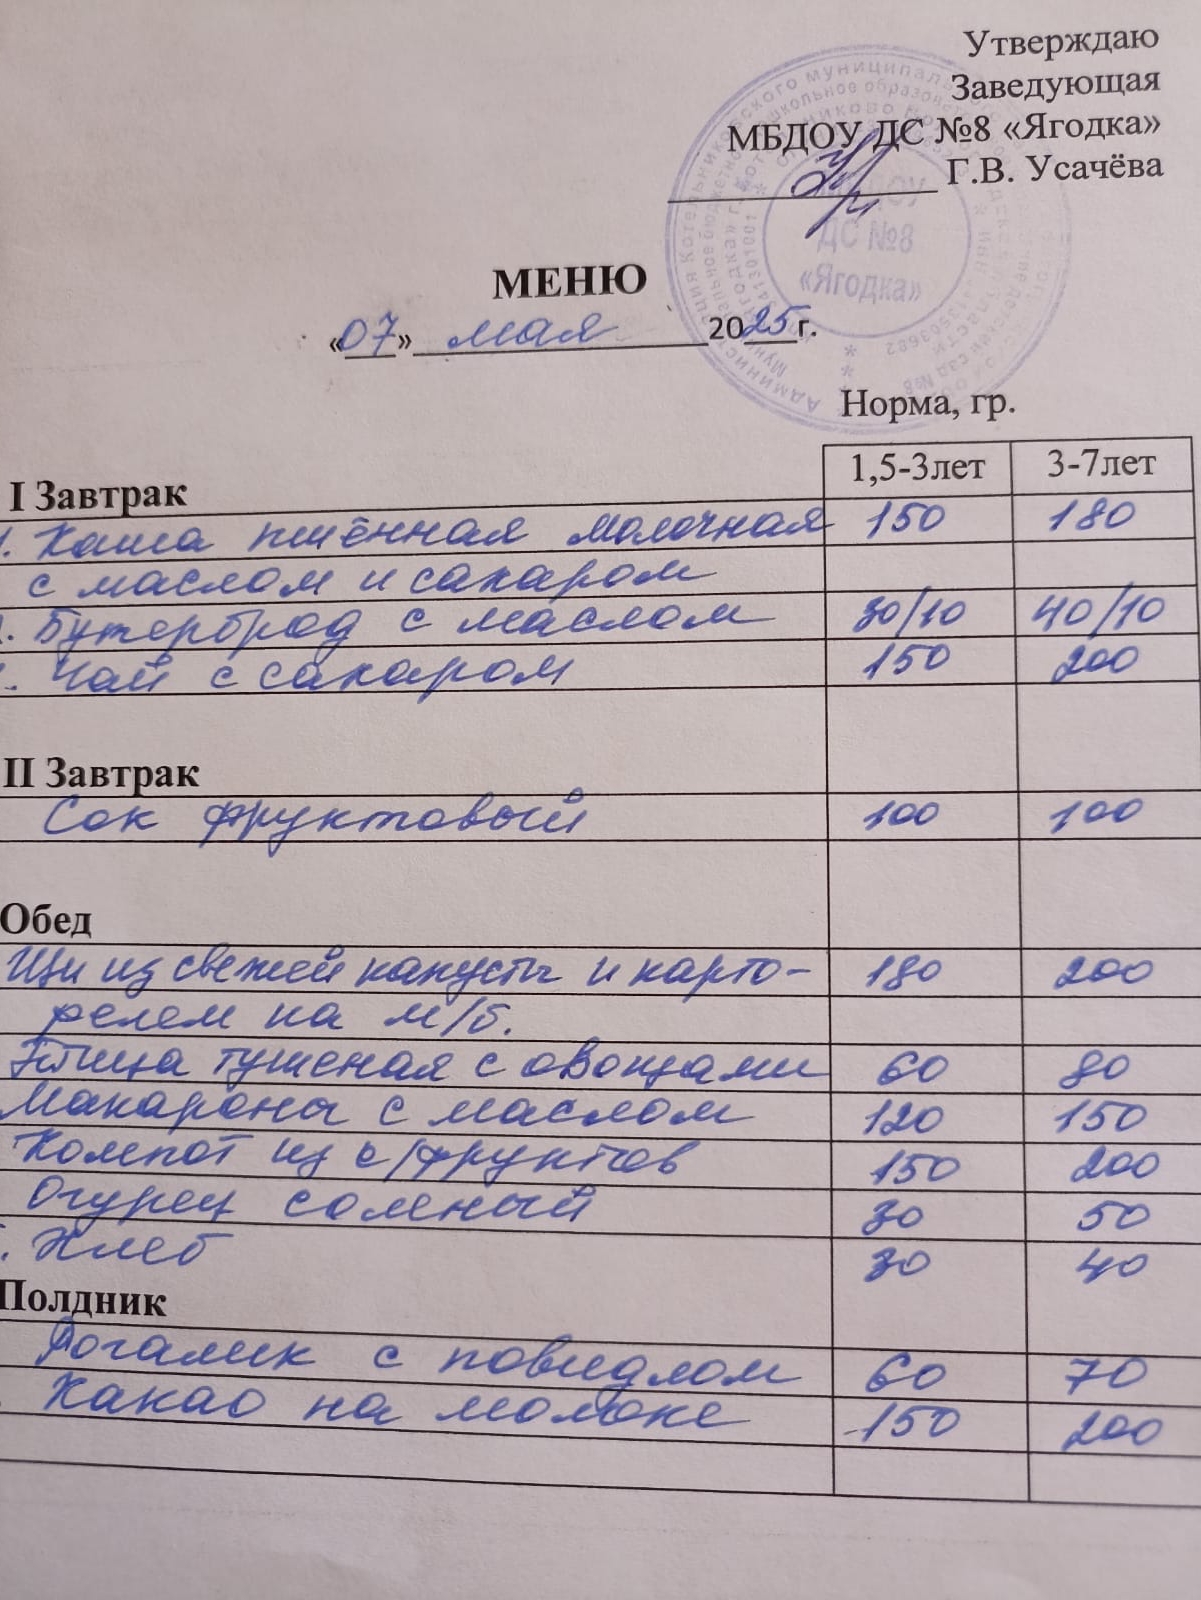 Утверждаю
Заведующая
МБДОУ ДС №8 «Ягодка»
Г.В. Усачёва
ДС №8
«Ягодка»
МЕНЮ
«07» мая 2025 г.
Норма, гр.
I Завтрак 1,5-3лет 3-7лет
1. Каша пшённая молочная 150 180
с маслом и сахаром
. Бутерброд с маслом 30/10 40/10
. Чай с сахаром 150 200
II Завтрак
Сок фруктовый 100 100
Обед
Щи из свежей капусты и карто- 180 200
фелем на м/б.
Птица тушеная с овощами 60 80
Макароны с маслом 120 150
Компот из с/фруктов 150 200
Огурец соленый 30 50
. Хлеб 30 40
Полдник
Рогалик с повидлом 60 70
Какао на молоке 150 200